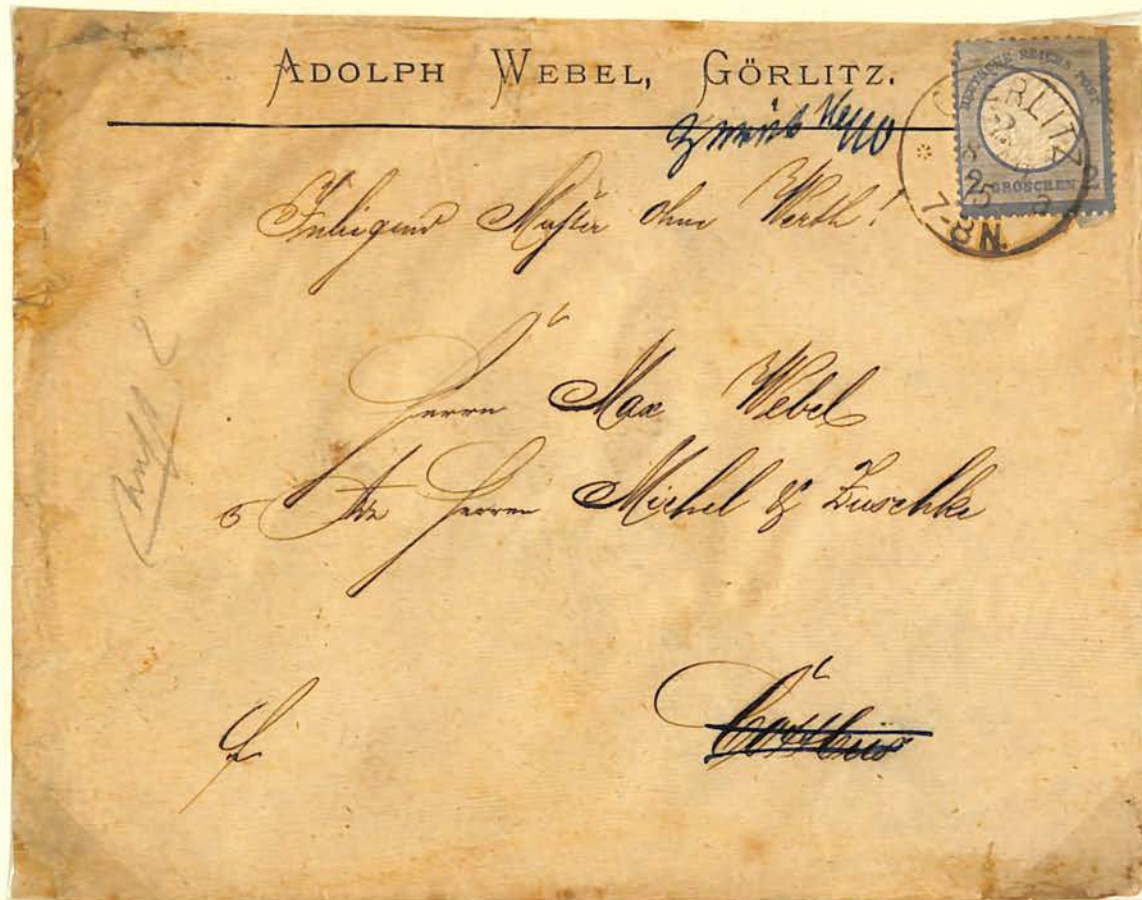 ADOLPH WEBEL, GÖRLITZ.
zurück
DEUTSCHE REICHS POST
2 GROSCHEN 2
GÖRLITZ
7-8 N.
Inliegend Muster ohne Werth!
Herrn Max Webel
Herren Michel & Zuschke
Cottbus